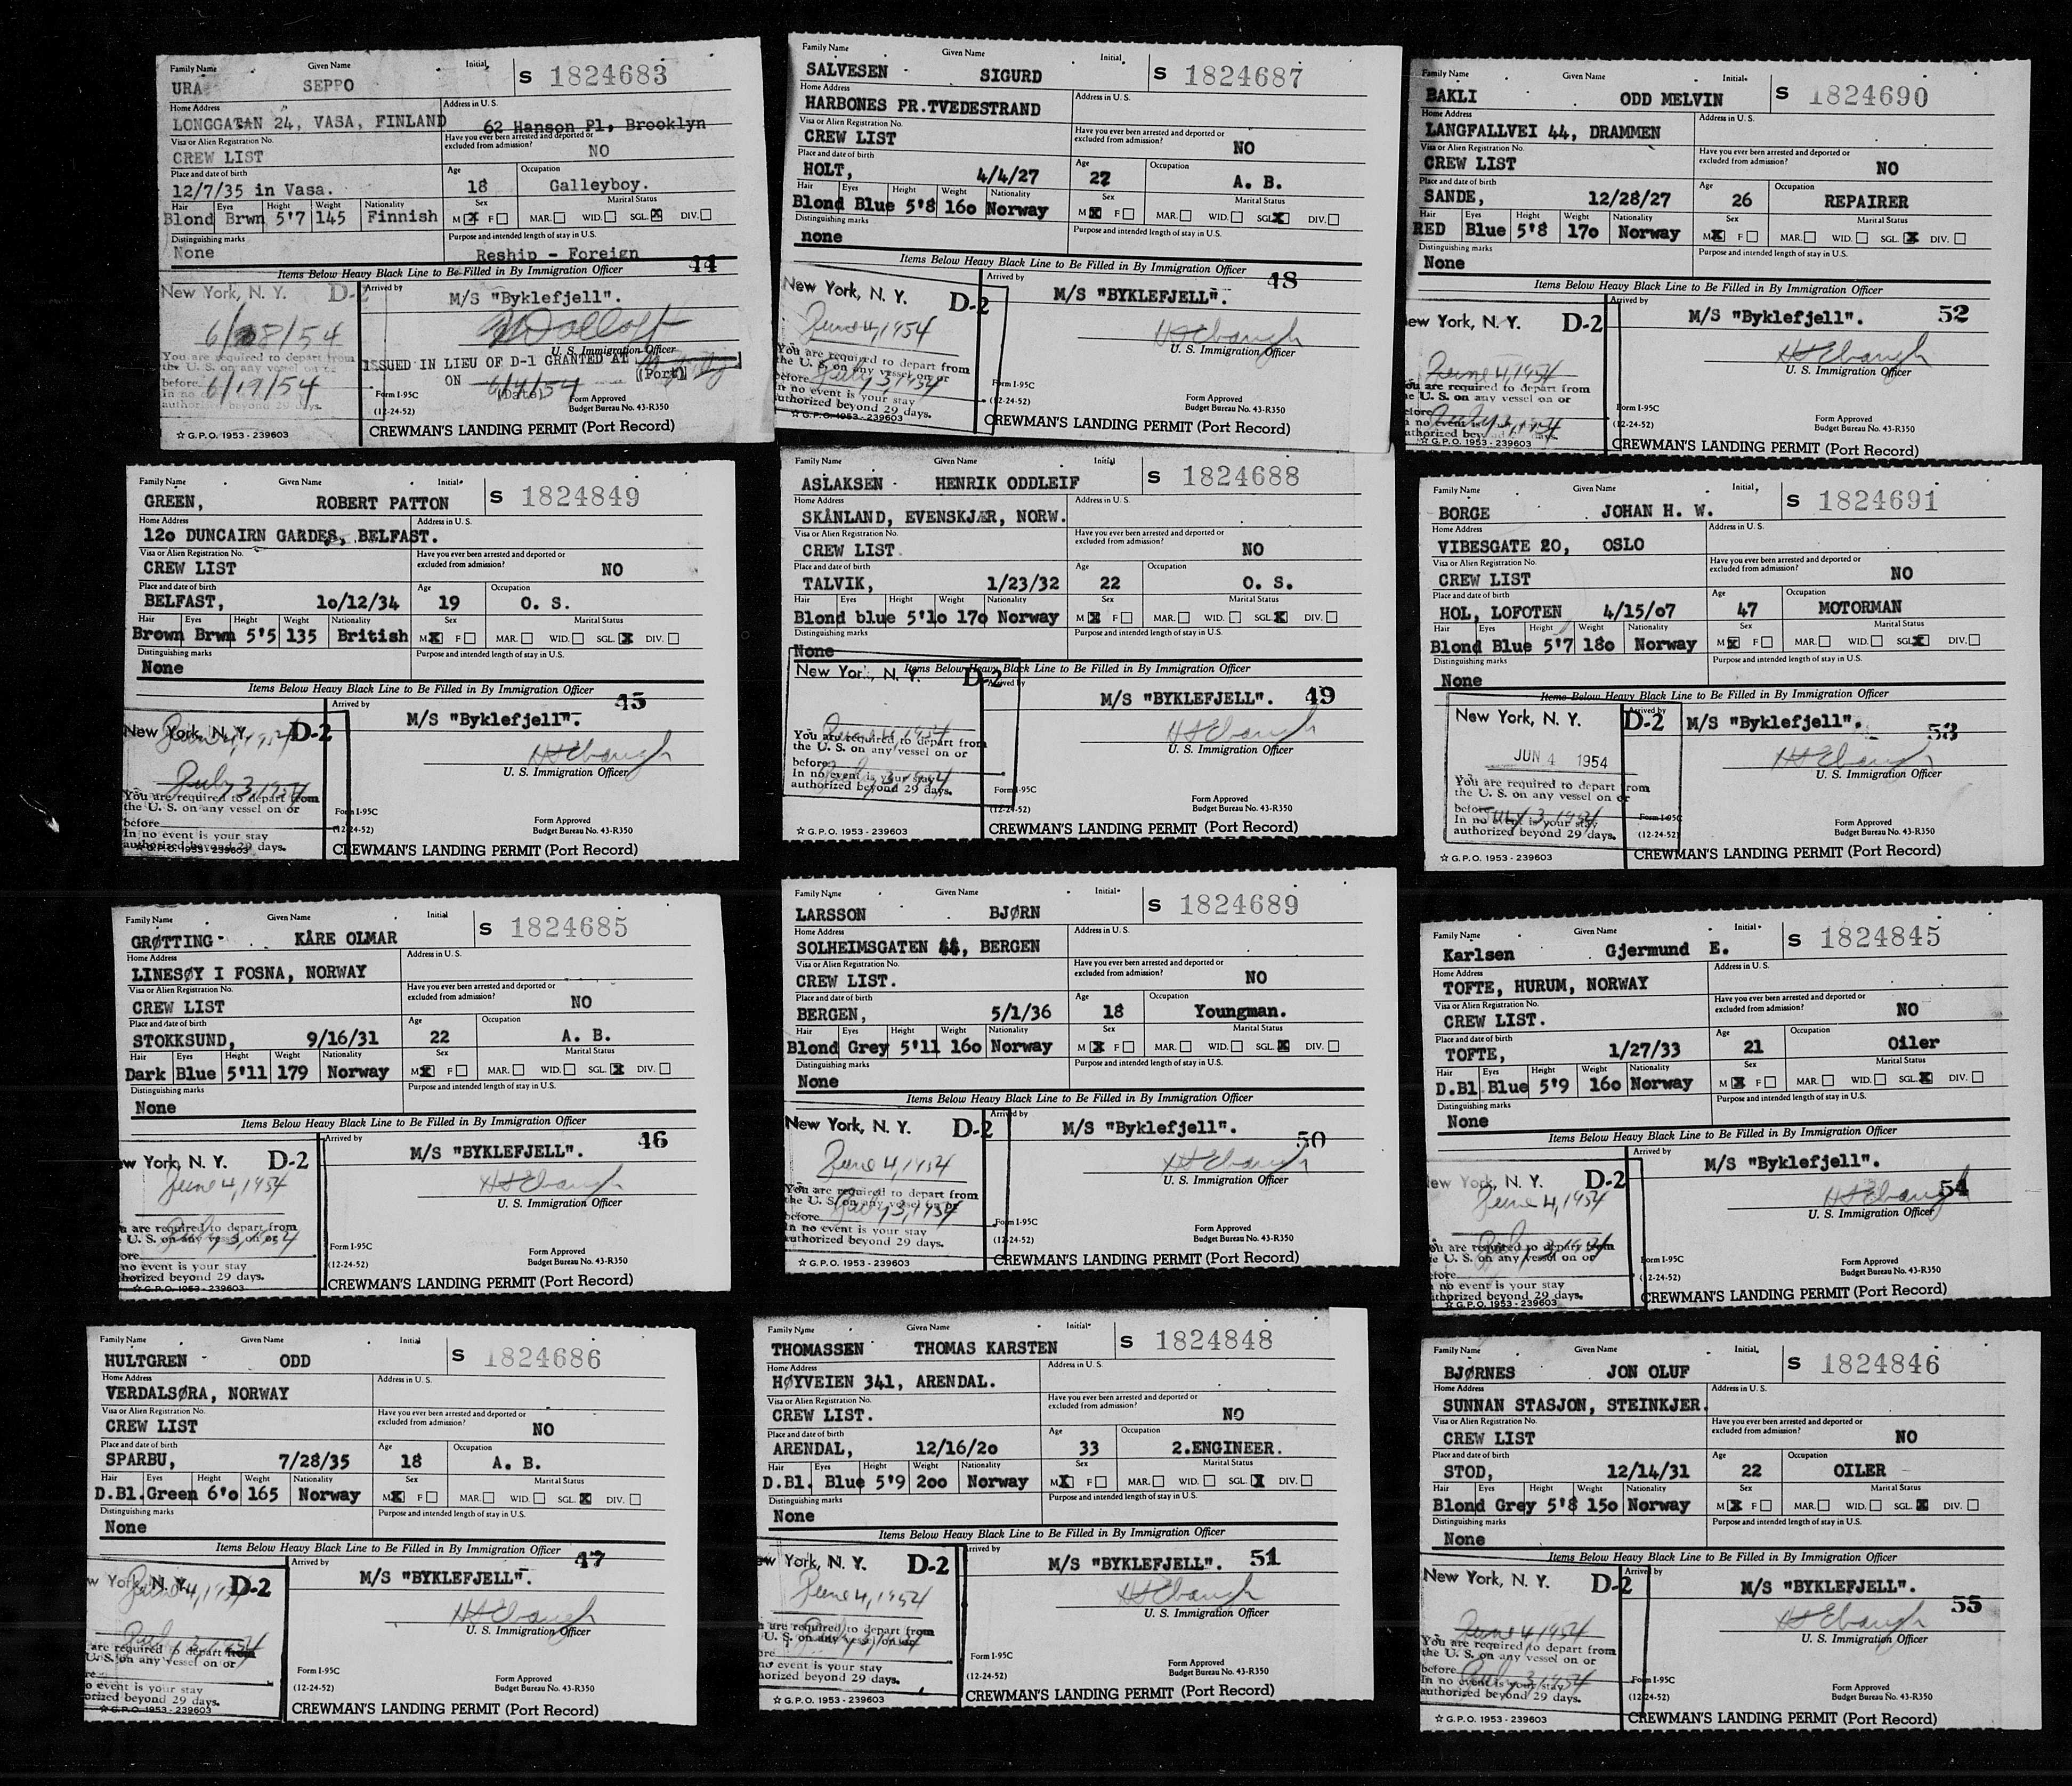 Family Name Given Name Initial
URA SEPPO S 1824683
Home Address Address in U. S.
LONGGATAN 24, VASA, FINLAND 62 Hanson Pl, Brooklyn
Visa or Alien Registration No. Have you ever been arrested and deported or excluded from admission?
CREW LIST NO
Place and date of birth Age Occupation
12/7/35 in Vasa. 18 Galleyboy.
Hair Eyes Height Weight Nationality Sex Marital Status
Blond Brwn 5'7 145 Finnish M X F MAR. WID. SGL. X DIV.
Distinguishing marks Purpose and intended length of stay in U.S.
None Reship - Foreign
Items Below Heavy Black Line to Be Filled in By Immigration Officer 44
New York, N. Y. D-2 Arrived by
M/S "Byklefjell".
U. S. Immigration Officer
ISSUED IN LIEU OF D-1 GRANTED AT
(Port)
ON 6/4/54
(Date)
You are required to depart from
the U. S. on any vessel on or
before 6/19/54
In no
authorized beyond 29 days.
Form I-95C
(12-24-52)
Form Approved
Budget Bureau No. 43-R350
☆ G.P.O. 1953 - 239603
CREWMAN'S LANDING PERMIT (Port Record)
Family Name Given Name Initial
GREEN, ROBERT PATTON S 1824849
Home Address Address in U. S.
12o DUNCAIRN GARDES, BELFAST.
Visa or Alien Registration No. Have you ever been arrested and deported or excluded from admission?
CREW LIST NO
Place and date of birth Age Occupation
BELFAST, 1o/12/34 19 O. S.
Hair Eyes Height Weight Nationality Sex Marital Status
Brown Brwn 5'5 135 British M X F MAR. WID. SGL. X DIV.
Distinguishing marks Purpose and intended length of stay in U.S.
None
Items Below Heavy Black Line to Be Filled in By Immigration Officer
45
New York, N. Y. D-2 Arrived by
M/S "Byklefjell".
June 4, 1954
HS Ebaugh
U. S. Immigration Officer
July 3, 1954
You are required to depart from
the U. S. on any vessel on or
before
In no event is your stay
authorized beyond 29 days.
Form I-95C
(12-24-52)
Form Approved
Budget Bureau No. 43-R350
☆ G.P.O. 1953 - 239603
CREWMAN'S LANDING PERMIT (Port Record)
Family Name Given Name Initial
GRØTTING KÅRE OLMAR S 1824685
Home Address Address in U. S.
LINESØY I FOSNA, NORWAY
Visa or Alien Registration No. Have you ever been arrested and deported or excluded from admission?
CREW LIST NO
Place and date of birth Age Occupation
STOKKSUND, 9/16/31 22 A. B.
Hair Eyes Height Weight Nationality Sex Marital Status
Dark Blue 5'11 179 Norway M X F MAR. WID. SGL. X DIV.
Distinguishing marks Purpose and intended length of stay in U.S.
None
Items Below Heavy Black Line to Be Filled in By Immigration Officer
46
w York, N. Y. D-2 Arrived by
M/S "BYKLEFJELL".
June 4, 1954
HS Ebaugh
U. S. Immigration Officer
are required to depart from
U. S. on any vessel on or
July 3, 1954
ore
no event is your stay
horized beyond 29 days.
Form I-95C
(12-24-52)
Form Approved
Budget Bureau No. 43-R350
☆ G.P.O. 1953 - 239603
CREWMAN'S LANDING PERMIT (Port Record)
Family Name Given Name Initial
HULTGREN ODD S 1824686
Home Address Address in U. S.
VERDALSØRA, NORWAY
Visa or Alien Registration No. Have you ever been arrested and deported or excluded from admission?
CREW LIST NO
Place and date of birth Age Occupation
SPARBU, 7/28/35 18 A. B.
Hair Eyes Height Weight Nationality Sex Marital Status
D.Bl. Green 6'o 165 Norway M X F MAR. WID. SGL. X DIV.
Distinguishing marks Purpose and intended length of stay in U.S.
None
Items Below Heavy Black Line to Be Filled in By Immigration Officer
47
w York, N. Y. D-2 Arrived by
M/S "BYKLEFJELL".
June 4, 1954
HS Ebaugh
U. S. Immigration Officer
July 3, 1954
are required to depart from
U. S. on any vessel on or
re
o event is your stay
orized beyond 29 days.
Form I-95C
(12-24-52)
Form Approved
Budget Bureau No. 43-R350
☆ G.P.O. 1953 - 239603
CREWMAN'S LANDING PERMIT (Port Record)
Family Name Given Name Initial
SALVESEN SIGURD S 1824687
Home Address Address in U. S.
HARBONES PR.TVEDESTRAND
Visa or Alien Registration No. Have you ever been arrested and deported or excluded from admission?
CREW LIST NO
Place and date of birth Age Occupation
HOLT, 4/4/27 27 A. B.
Hair Eyes Height Weight Nationality Sex Marital Status
Blond Blue 5'8 16o Norway M X F MAR. WID. SGL. X DIV.
Distinguishing marks Purpose and intended length of stay in U.S.
none
Items Below Heavy Black Line to Be Filled in By Immigration Officer
48
New York, N. Y. D-2 Arrived by
M/S "BYKLEFJELL".
June 4, 1954
HS Ebaugh
U. S. Immigration Officer
You are required to depart from
the U. S. on any vessel on or
before July 3, 1954
In no event is your stay
uthorized beyond 29 days.
Form I-95C
(12-24-52)
Form Approved
Budget Bureau No. 43-R350
☆ G.P.O. 1953 - 239603
CREWMAN'S LANDING PERMIT (Port Record)
Family Name Given Name Initial
ASLAKSEN HENRIK ODDLEIF S 1824688
Home Address Address in U. S.
SKÅNLAND, EVENSKJÆR, NORW.
Visa or Alien Registration No. Have you ever been arrested and deported or excluded from admission?
CREW LIST NO
Place and date of birth Age Occupation
TALVIK, 1/23/32 22 O. S.
Hair Eyes Height Weight Nationality Sex Marital Status
Blond blue 5'1o 17o Norway M X F MAR. WID. SGL. X DIV.
Distinguishing marks Purpose and intended length of stay in U.S.
None
Items Below Heavy Black Line to Be Filled in By Immigration Officer
New York, N. Y. D-2 Arrived by
M/S "BYKLEFJELL". 49
June 4, 1954
HS Ebaugh
U. S. Immigration Officer
You are required to depart from
the U. S. on any vessel on or
before
July 3, 1954
In no event is your stay
authorized beyond 29 days.
Form I-95C
(12-24-52)
Form Approved
Budget Bureau No. 43-R350
☆ G.P.O. 1953 - 239603
CREWMAN'S LANDING PERMIT (Port Record)
Family Name Given Name Initial
LARSSON BJØRN S 1824689
Home Address Address in U. S.
SOLHEIMSGATEN 44, BERGEN
Visa or Alien Registration No. Have you ever been arrested and deported or excluded from admission?
CREW LIST. NO
Place and date of birth Age Occupation
BERGEN, 5/1/36 18 Youngman.
Hair Eyes Height Weight Nationality Sex Marital Status
Blond Grey 5'11 16o Norway M X F MAR. WID. SGL. X DIV.
Distinguishing marks Purpose and intended length of stay in U.S.
None
Items Below Heavy Black Line to Be Filled in By Immigration Officer
New York, N. Y. D-2 Arrived by
M/S "Byklefjell".
50
June 4, 1954
HS Ebaugh
U. S. Immigration Officer
You are required to depart from
the U. S. on any vessel on or
before July 3, 1954
In no event is your stay
authorized beyond 29 days.
Form I-95C
(12-24-52)
Form Approved
Budget Bureau No. 43-R350
☆ G.P.O. 1953 - 239603
CREWMAN'S LANDING PERMIT (Port Record)
Family Name Given Name Initial
THOMASSEN THOMAS KARSTEN S 1824848
Home Address Address in U. S.
HØYVEIEN 341, ARENDAL.
Visa or Alien Registration No. Have you ever been arrested and deported or excluded from admission?
CREW LIST. NO
Place and date of birth Age Occupation
ARENDAL, 12/16/2o 33 2.ENGINEER.
Hair Eyes Height Weight Nationality Sex Marital Status
D.Bl. Blue 5'9 2oo Norway M X F MAR. WID. SGL. X DIV.
Distinguishing marks Purpose and intended length of stay in U.S.
None
Items Below Heavy Black Line to Be Filled in By Immigration Officer
ew York, N. Y. D-2 Arrived by
M/S "BYKLEFJELL". 51
June 4, 1954
HS Ebaugh
U. S. Immigration Officer
are required to depart from
U. S. on any vessel on or
July 3, 1954
ore
no event is your stay
horized beyond 29 days.
Form I-95C
(12-24-52)
Form Approved
Budget Bureau No. 43-R350
☆ G.P.O. 1953 - 239603
CREWMAN'S LANDING PERMIT (Port Record)
Family Name Given Name Initial
BAKLI ODD MELVIN S 1824690
Home Address Address in U. S.
LANGFALLVEI 44, DRAMMEN
Visa or Alien Registration No. Have you ever been arrested and deported or excluded from admission?
CREW LIST NO
Place and date of birth Age Occupation
SANDE, 12/28/27 26 REPAIRER
Hair Eyes Height Weight Nationality Sex Marital Status
RED Blue 5'8 17o Norway M X F MAR. WID. SGL. X DIV.
Distinguishing marks Purpose and intended length of stay in U.S.
None
Items Below Heavy Black Line to Be Filled in By Immigration Officer
ew York, N. Y. D-2 Arrived by
M/S "Byklefjell". 52
June 4, 1954
HS Ebaugh
U. S. Immigration Officer
ou are required to depart from
the U. S. on any vessel on or
efore July 3, 1954
n no event is your stay
uthorized beyond 29 days.
Form I-95C
(12-24-52)
Form Approved
Budget Bureau No. 43-R350
☆ G.P.O. 1953 - 239603
CREWMAN'S LANDING PERMIT (Port Record)
Family Name Given Name Initial
BORGE JOHAN H. W. S 1824691
Home Address Address in U. S.
VIBESGATE 20, OSLO
Visa or Alien Registration No. Have you ever been arrested and deported or excluded from admission?
CREW LIST NO
Place and date of birth Age Occupation
HOL, LOFOTEN 4/15/o7 47 MOTORMAN
Hair Eyes Height Weight Nationality Sex Marital Status
Blond Blue 5'7 18o Norway M X F MAR. WID. SGL. X DIV.
Distinguishing marks Purpose and intended length of stay in U.S.
None
Items Below Heavy Black Line to Be Filled in By Immigration Officer
New York, N. Y. D-2 Arrived by
M/S "Byklefjell". 53
JUN 4 1954
HS Ebaugh
U. S. Immigration Officer
You are required to depart from
the U. S. on any vessel on or
before July 3, 1954
In no event is your stay
authorized beyond 29 days.
Form I-95C
(12-24-52)
Form Approved
Budget Bureau No. 43-R350
☆ G.P.O. 1953 - 239603
CREWMAN'S LANDING PERMIT (Port Record)
Family Name Given Name Initial
Karlsen Gjermund E. S 1824845
Home Address Address in U. S.
TOFTE, HURUM, NORWAY
Visa or Alien Registration No. Have you ever been arrested and deported or excluded from admission?
CREW LIST. NO
Place and date of birth Age Occupation
TOFTE, 1/27/33 21 Oiler
Hair Eyes Height Weight Nationality Sex Marital Status
D.Bl. Blue 5'9 16o Norway M X F MAR. WID. SGL. X DIV.
Distinguishing marks Purpose and intended length of stay in U.S.
None
Items Below Heavy Black Line to Be Filled in By Immigration Officer
ew York, N. Y. D-2 Arrived by
M/S "Byklefjell".
54
June 4, 1954
HS Ebaugh
U. S. Immigration Officer
ou are required to depart from
e U. S. on any vessel on or
July 3, 1954
efore
n no event is your stay
uthorized beyond 29 days.
Form I-95C
(12-24-52)
Form Approved
Budget Bureau No. 43-R350
☆ G.P.O. 1953 - 239603
CREWMAN'S LANDING PERMIT (Port Record)
Family Name Given Name Initial
BJØRNES JON OLUF S 1824846
Home Address Address in U. S.
SUNNAN STASJON, STEINKJER.
Visa or Alien Registration No. Have you ever been arrested and deported or excluded from admission?
CREW LIST NO
Place and date of birth Age Occupation
STOD, 12/14/31 22 OILER
Hair Eyes Height Weight Nationality Sex Marital Status
Blond Grey 5'8 15o Norway M X F MAR. WID. SGL. X DIV.
Distinguishing marks Purpose and intended length of stay in U.S.
None
Items Below Heavy Black Line to Be Filled in By Immigration Officer
New York, N. Y. D-2 Arrived by
M/S "BYKLEFJELL".
55
June 4 1954
HS Ebaugh
U. S. Immigration Officer
You are required to depart from
the U. S. on any vessel on or
before July 3, 1954
In no event is your stay
authorized beyond 29 days.
Form I-95C
(12-24-52)
Form Approved
Budget Bureau No. 43-R350
☆ G.P.O. 1953 - 239603
CREWMAN'S LANDING PERMIT (Port Record)